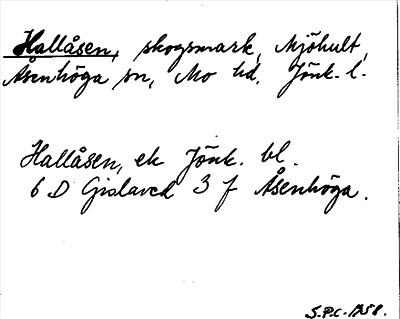 Hallåsen, skogsmark, Mjöhult,
Åsenhöga sn, Mo hd. Jönk. l.
Hallåsen, ek Jönk. bl.
6 D Gislaved 3 f Åsenhöga.
S.P.C. 1958.